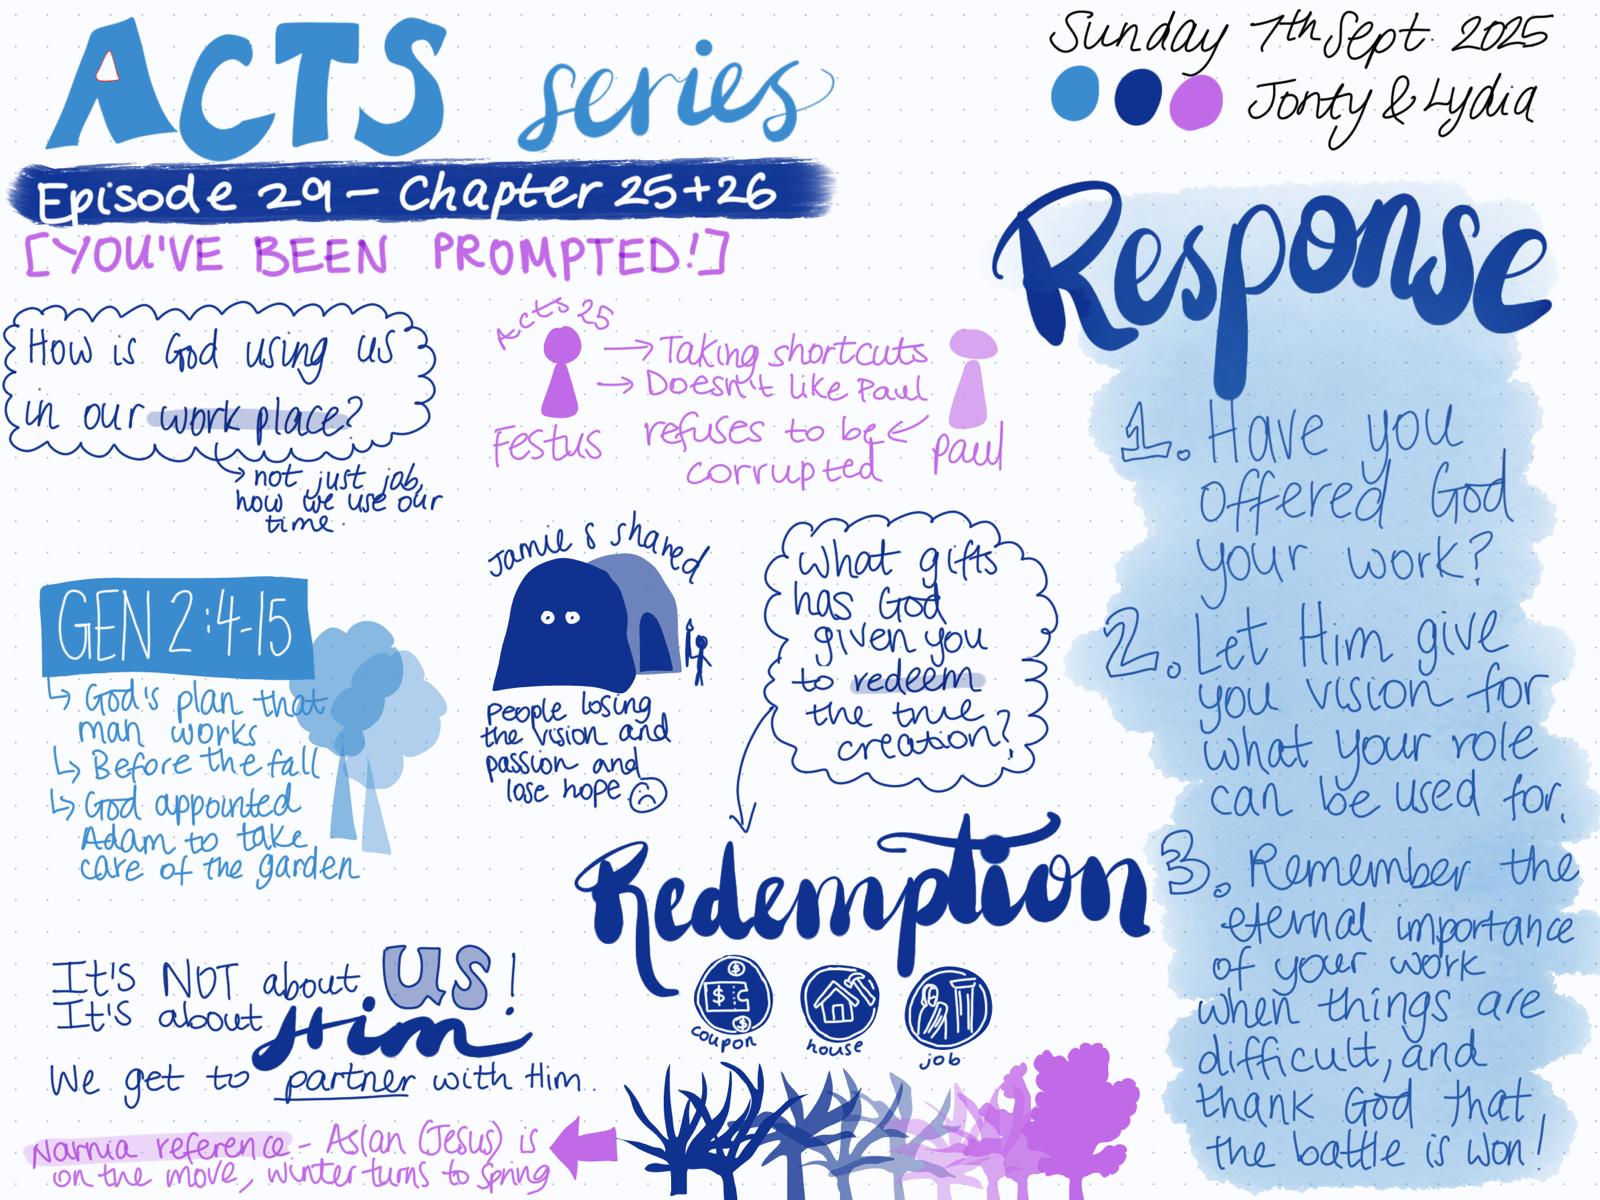 ACTS series
Episode 29 – Chapter 25+26
[YOU'VE BEEN PROMPTED!]
Sunday 7th Sept. 2025
Jonty & Lydia
How is God using us
in our work place?
→ not just job,
how we use our
time.
Acts 25
Festus
→ Taking shortcuts
→ Doesn't like Paul
refuses to be ←
corrupted
Paul
GEN 2:4-15
↳ God's plan that
man works
↳ Before the fall
↳ God appointed
Adam to take
care of the garden
Jamie S shared
People losing
the vision and
passion and
lose hope
What gifts
has God
given you
to redeem
the true
creation?
Redemption
$
$
$
coupon
house
job
It's NOT about us!
It's about Him
We get to partner with Him.
Narnia reference – Aslan (Jesus) is
on the move, winter turns to spring
Response
1. Have you
offered God
your work?
2. Let Him give
you vision for
what your role
can be used for.
3. Remember the
eternal importance
of your work
when things are
difficult, and
thank God that,
the battle is won!